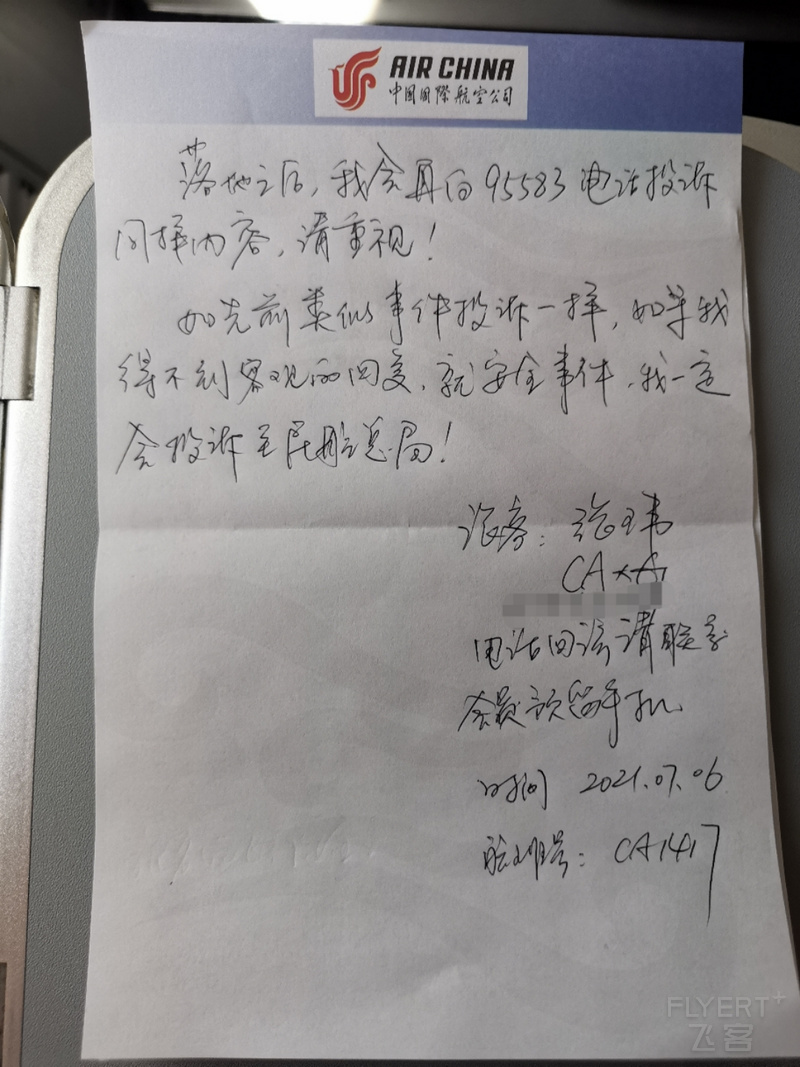 AIR CHINA
中国国際航空公司
落地之后，我会再向95583电话投诉
同样内容，请重视！
如先前类似事件投诉一样，如果我
得不到客观的回复，就安全事件，我一定
会投诉至民航总局！
旅客：张玮
CA
电话回访请联系
会员预留手机
时间 2021.07.06
航班号：CA1417
FLYERT+
飞客